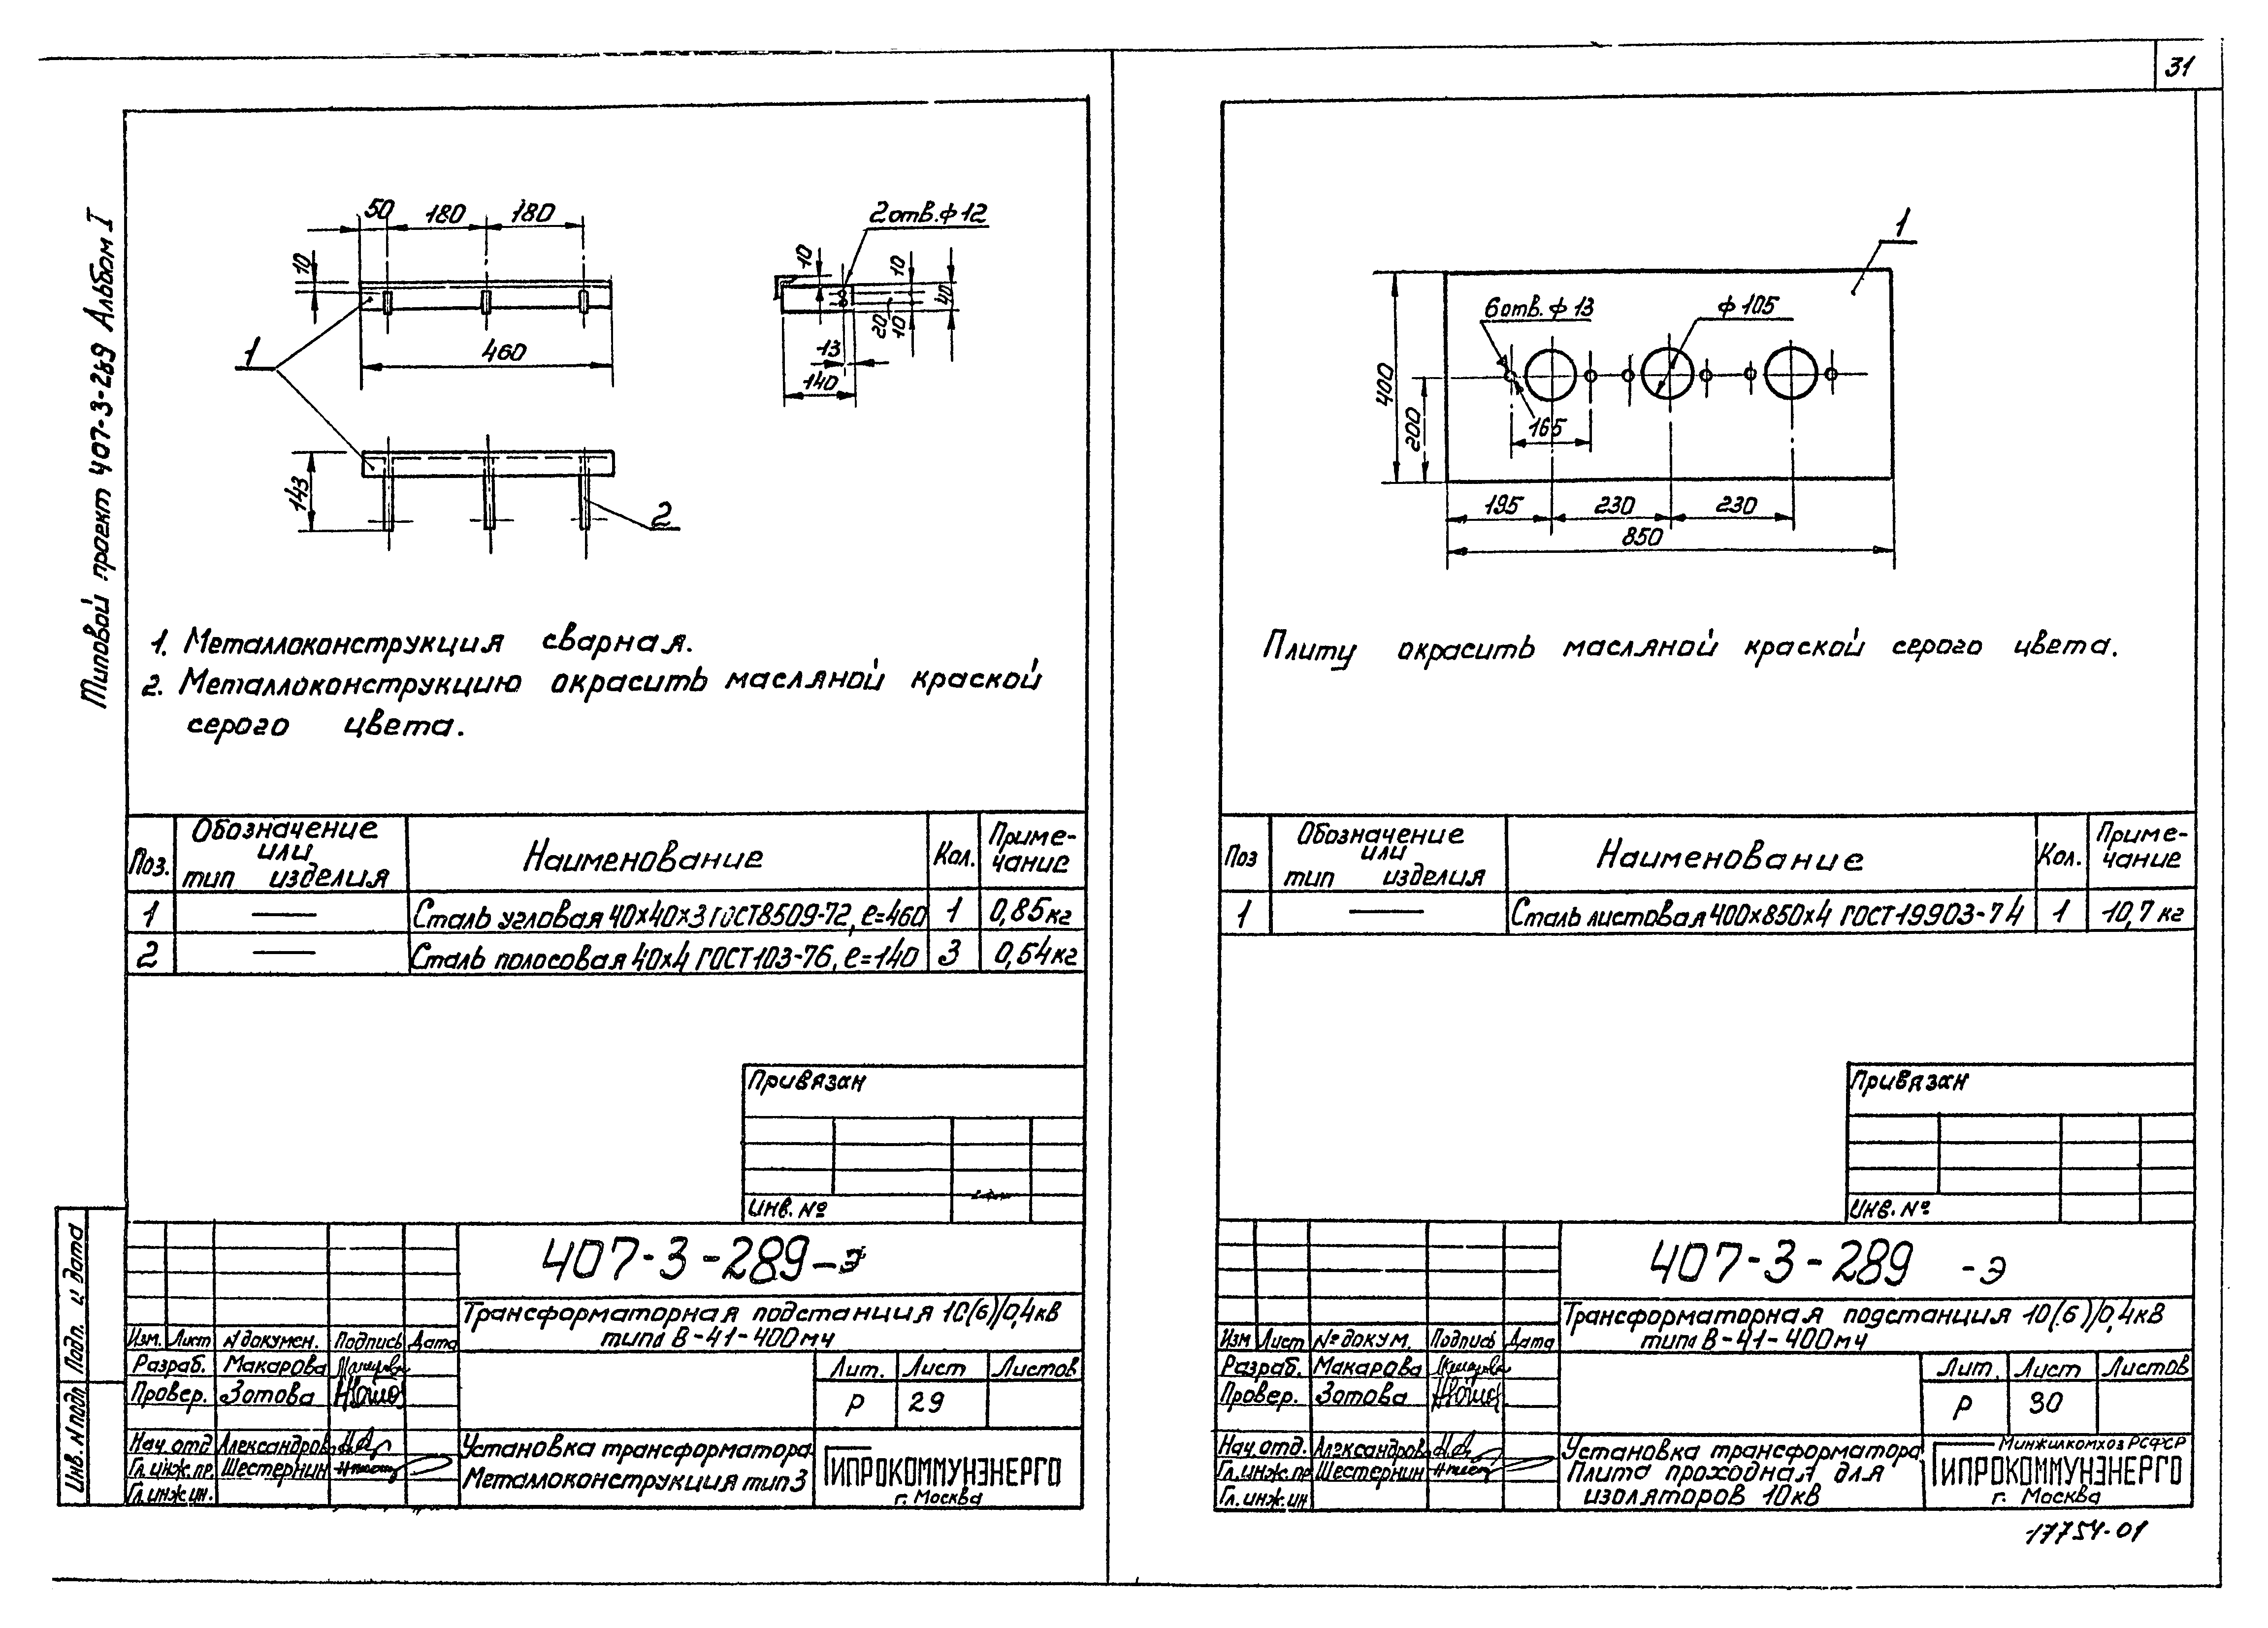 31
Типовой проект 407-3-289 Альбом I
50 180 180
10
1
460
143
2
2 отв. ф 12
10 10 40
20 10
13
140
1. Металлоконструкция сварная.
2. Металлоконструкцию окрасить масляной краской
серого цвета.
Поз. Обозначение или тип изделия Наименование Кол. Примечание
1 — Сталь угловая 40х40х3 ГОСТ 8509-72, ℓ=460 1 0,85кг
2 — Сталь полосовая 40х4 ГОСТ 103-76, ℓ=140 3 0,54кг
Привязан
Инв. №
407-3-289-Э
Трансформаторная подстанция 10(6)/0,4кв
типа В-41-400мч
Изм. Лист N докумен. Подпись Дата
Разраб. Макарова
Провер. Зотова
Нач. отд Александров
Гл. инж. пр. Шестернин
Гл. инж. ин.
Лит. Лист Листов
Р 29
Установка трансформатора
Металлоконструкция тип 3
ГИПРОКОММУНЭНЕРГО
г. Москва
Инв. N подл. Подп. и дата
1
6 отв. ф 13
ф 105
400
200
165
195 230 230
850
Плиту окрасить масляной краской серого цвета.
Поз Обозначение или тип изделия Наименование Кол. Примечание
1 — Сталь листовая 400х850х4 ГОСТ 19903-74 1 10,7 кг
Привязан
Инв. №
407-3-289 -Э
Трансформаторная подстанция 10(6)/0,4кв
типа В-41-400мч
Изм Лист № докум. Подпись Дата
Разраб. Макарова
Провер. Зотова
Нач. отд. Александров
Гл. инж. пр Шестернин
Гл. инж. ин
Лит. Лист Листов
Р 30
Установка трансформатора
Плита проходная для
изоляторов 10кв
Минжилкомхоз РСФСР
ГИПРОКОММУНЭНЕРГО
г. Москва
17754-01